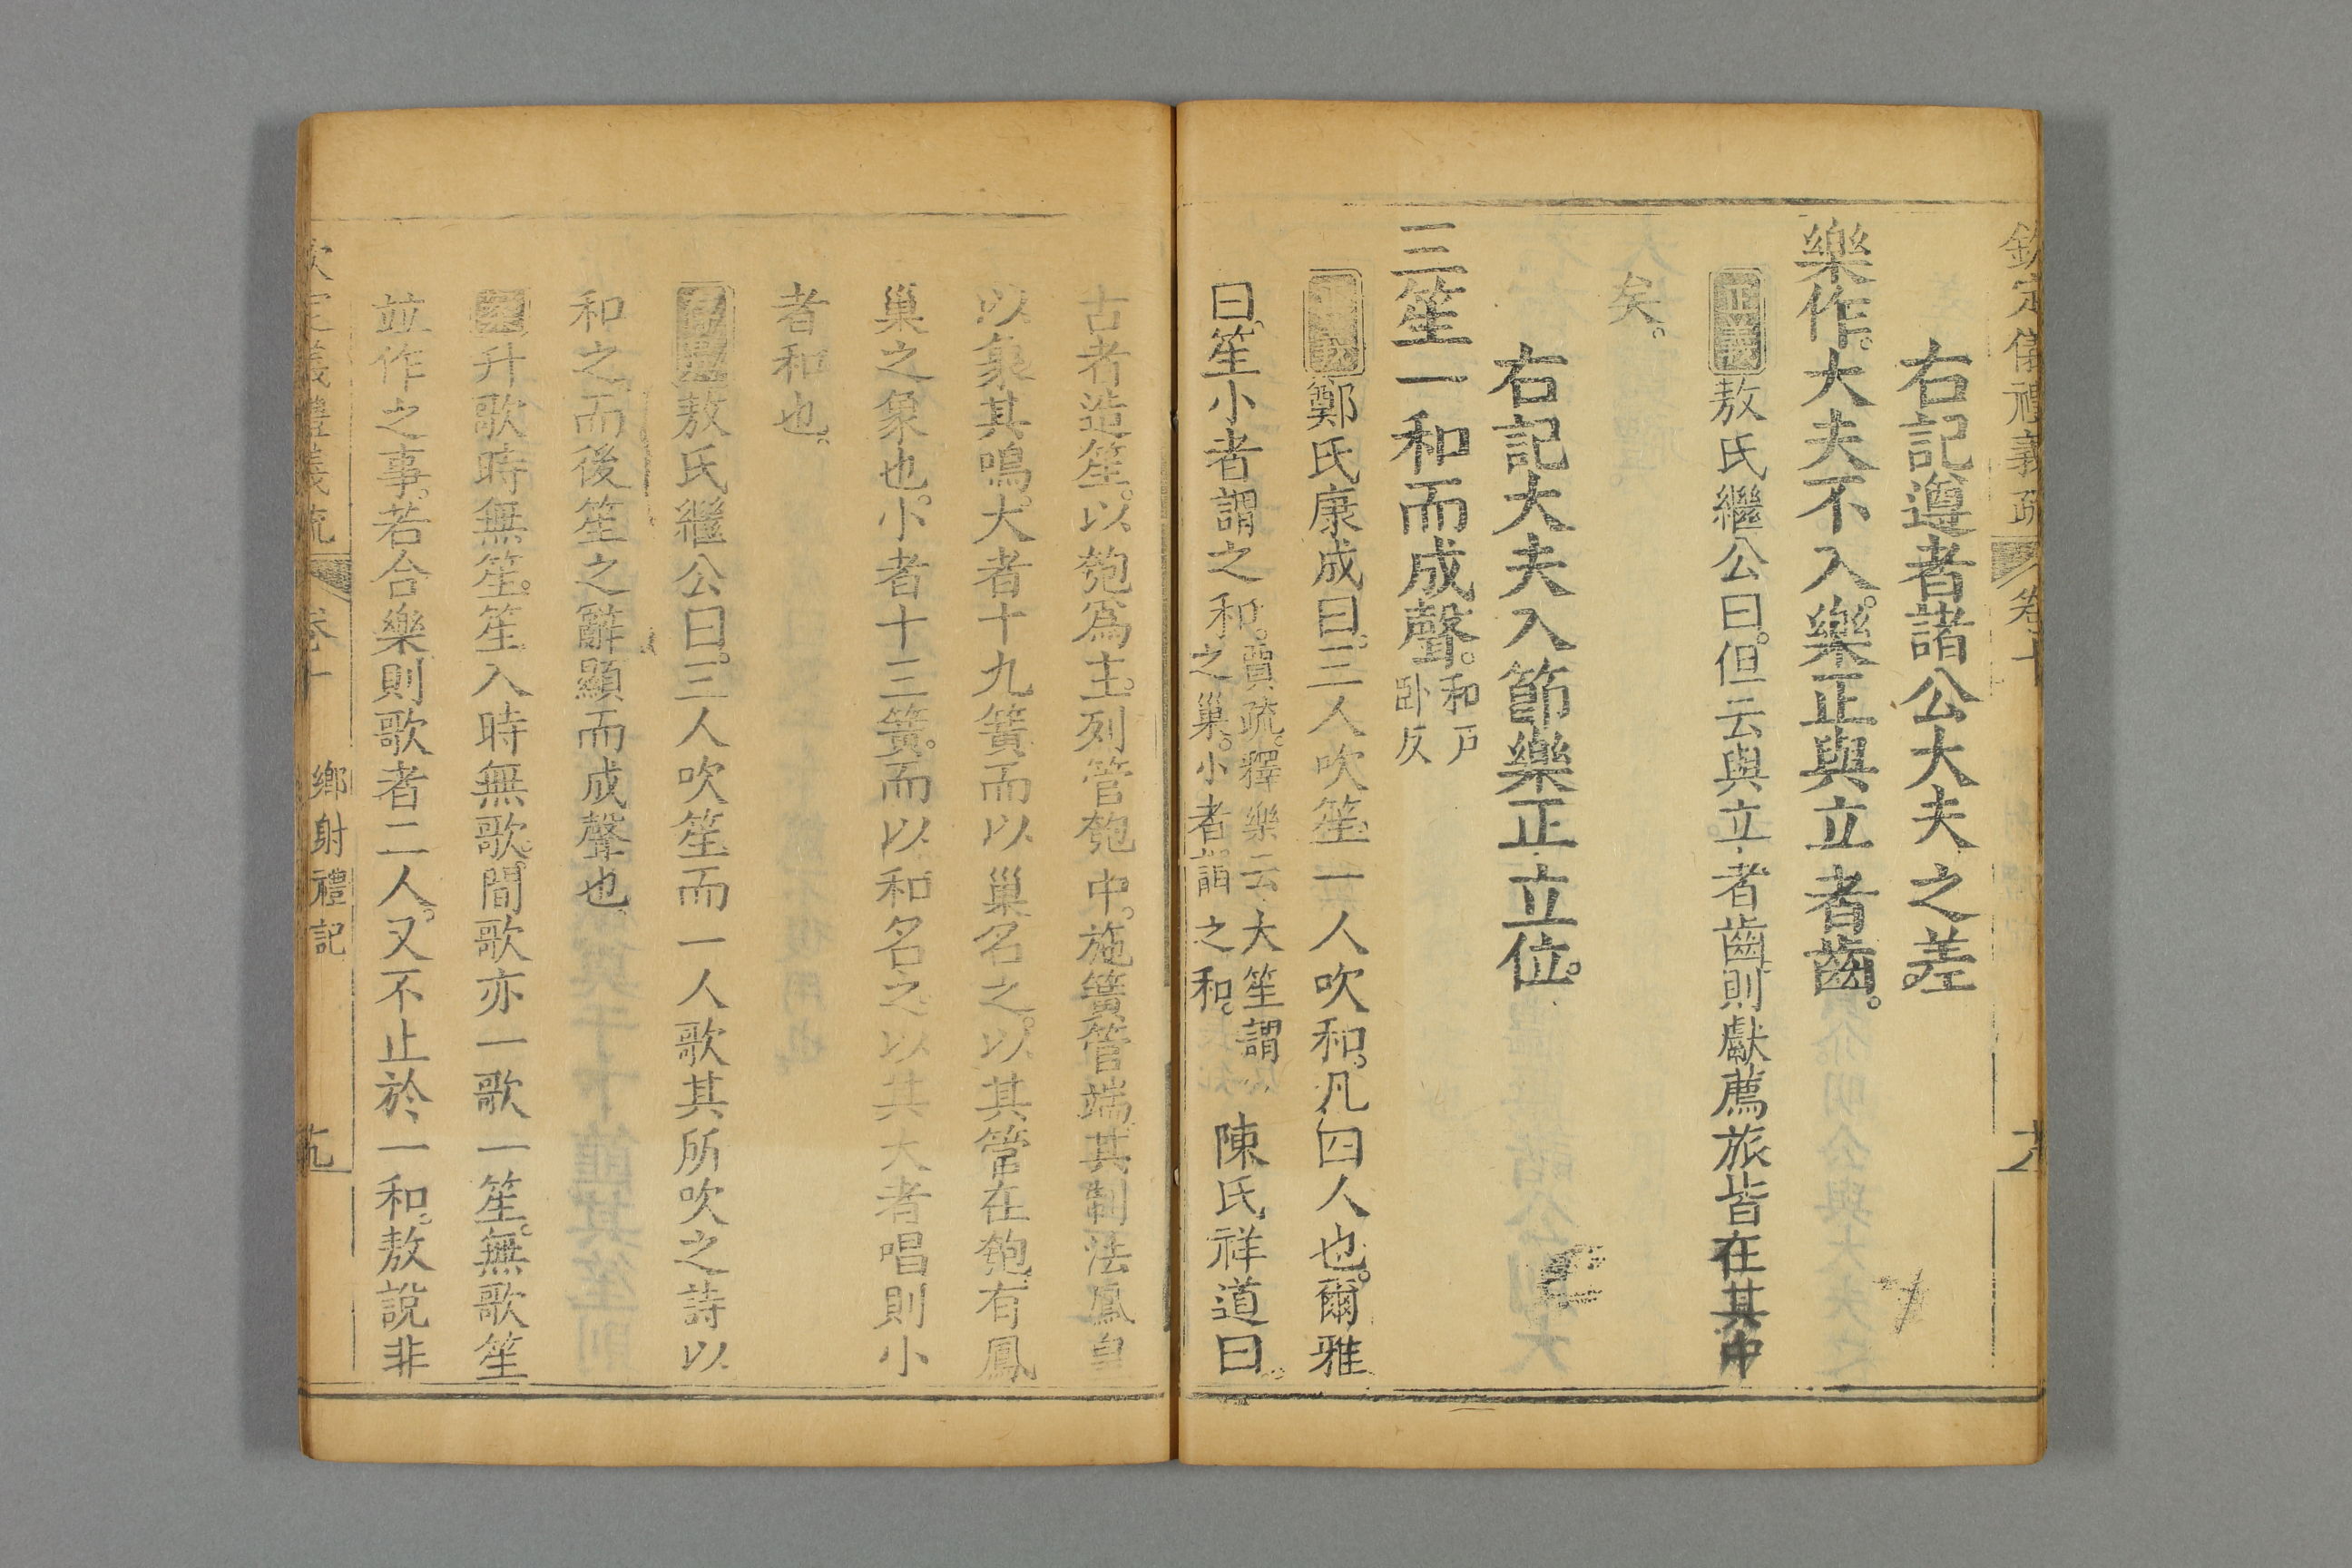 欽定儀禮義疏 卷十
右記遵者諸公大夫之差。
樂作。大夫不入。樂正與立者齒。
正義敖氏繼公曰。但云與立者齒則獻薦旅皆在其中
矣。
右記大夫入節樂正立位。
三笙一和而成聲。和戶卧反
正義鄭氏康成曰。三人吹笙一人吹和。凡四人也。爾雅
曰。笙小者謂之和。賈疏。釋樂云大笙謂之巢。小者謂之和。陳氏祥道曰。
古者造笙。以匏爲主。列管匏中。施簧管端。其制法鳳皇
以象其鳴。大者十九簧而以巢名之。以其管在匏有鳳
巢之象也。小者十三簧。而以和名之以其大者唱則小
者和也。
敖氏繼公曰。三人吹笙而一人歌其所吹之詩以
和之。而後笙之辭顯而成聲也
案升歌時無笙。笙入時無歌。間歌亦一歌一笙。無歌笙
並作之事。若合樂則歌者二人。又不止於一和。敖說非
欽定儀禮義疏 卷十 鄉射禮記